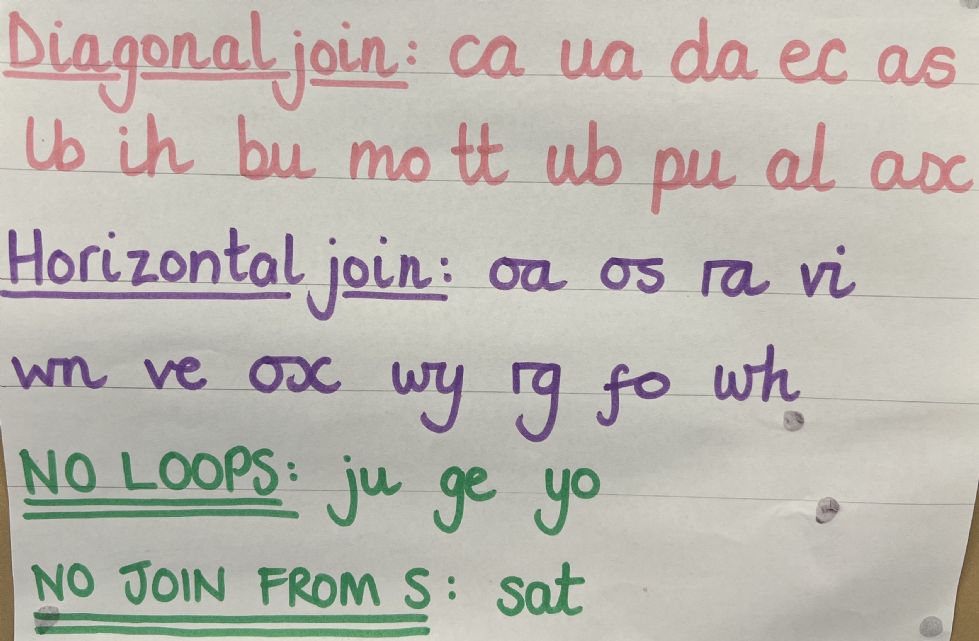 Diagonal join: ca ua da ec as
Ub ih bu mo tt ub pu al ax
Horizontal join: oa os ra vi
wn ve ox wy rg fo wh
NO LOOPS: ju ge yo
NO JOIN FROM S: sat